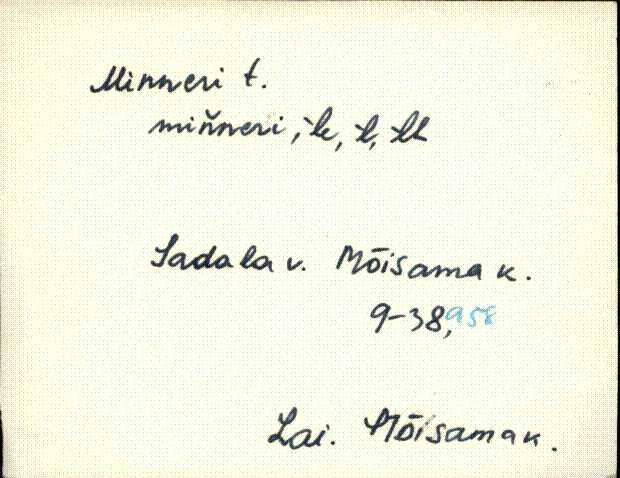 Minneri t.
miňneri, `k, `l, `ll
Sadala v. Mõisama k.
9-38, a58
Lai. Mõisama k.